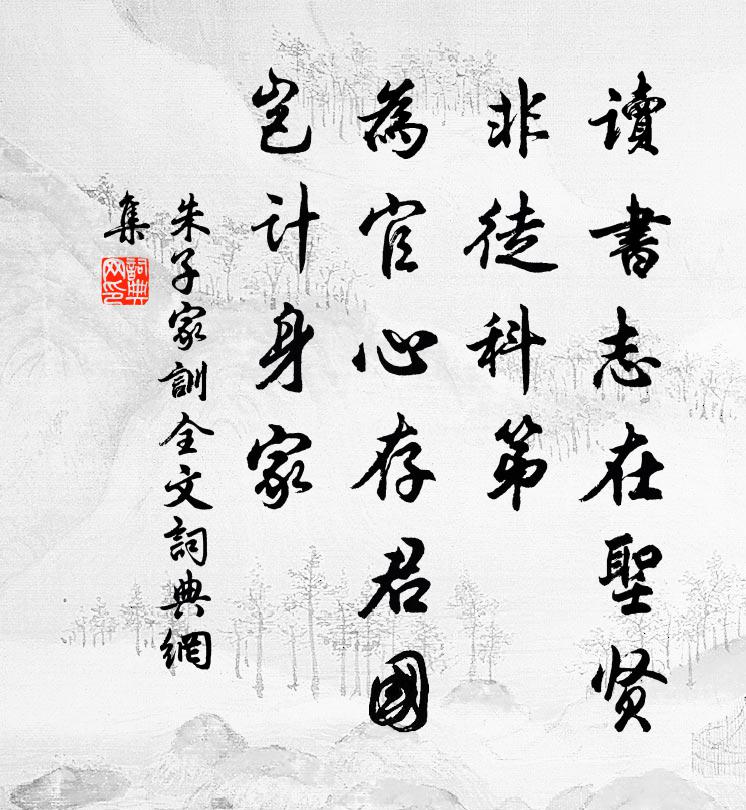 讀書志在聖贤
非徒科第
為官心存君國
岂计身家
朱子家訓全文詞典網
集
詞典
网印